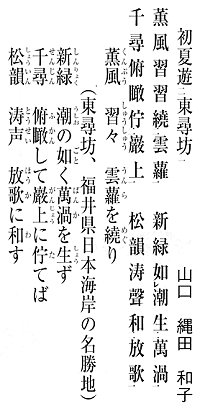 初夏遊二東尋坊一
山口 縄田 和子
薫風習習繞雲蘿 新緑如レ潮生萬渦
千尋俯瞰佇巖上 松韻涛聲和放歌
（東尋坊、福井県日本海岸の名勝地）
薫風 習々 雲蘿を繞り
新緑 潮の如く萬渦を生ず
千尋 俯瞰して巖上に佇てば
松韻 涛声 放歌に和す